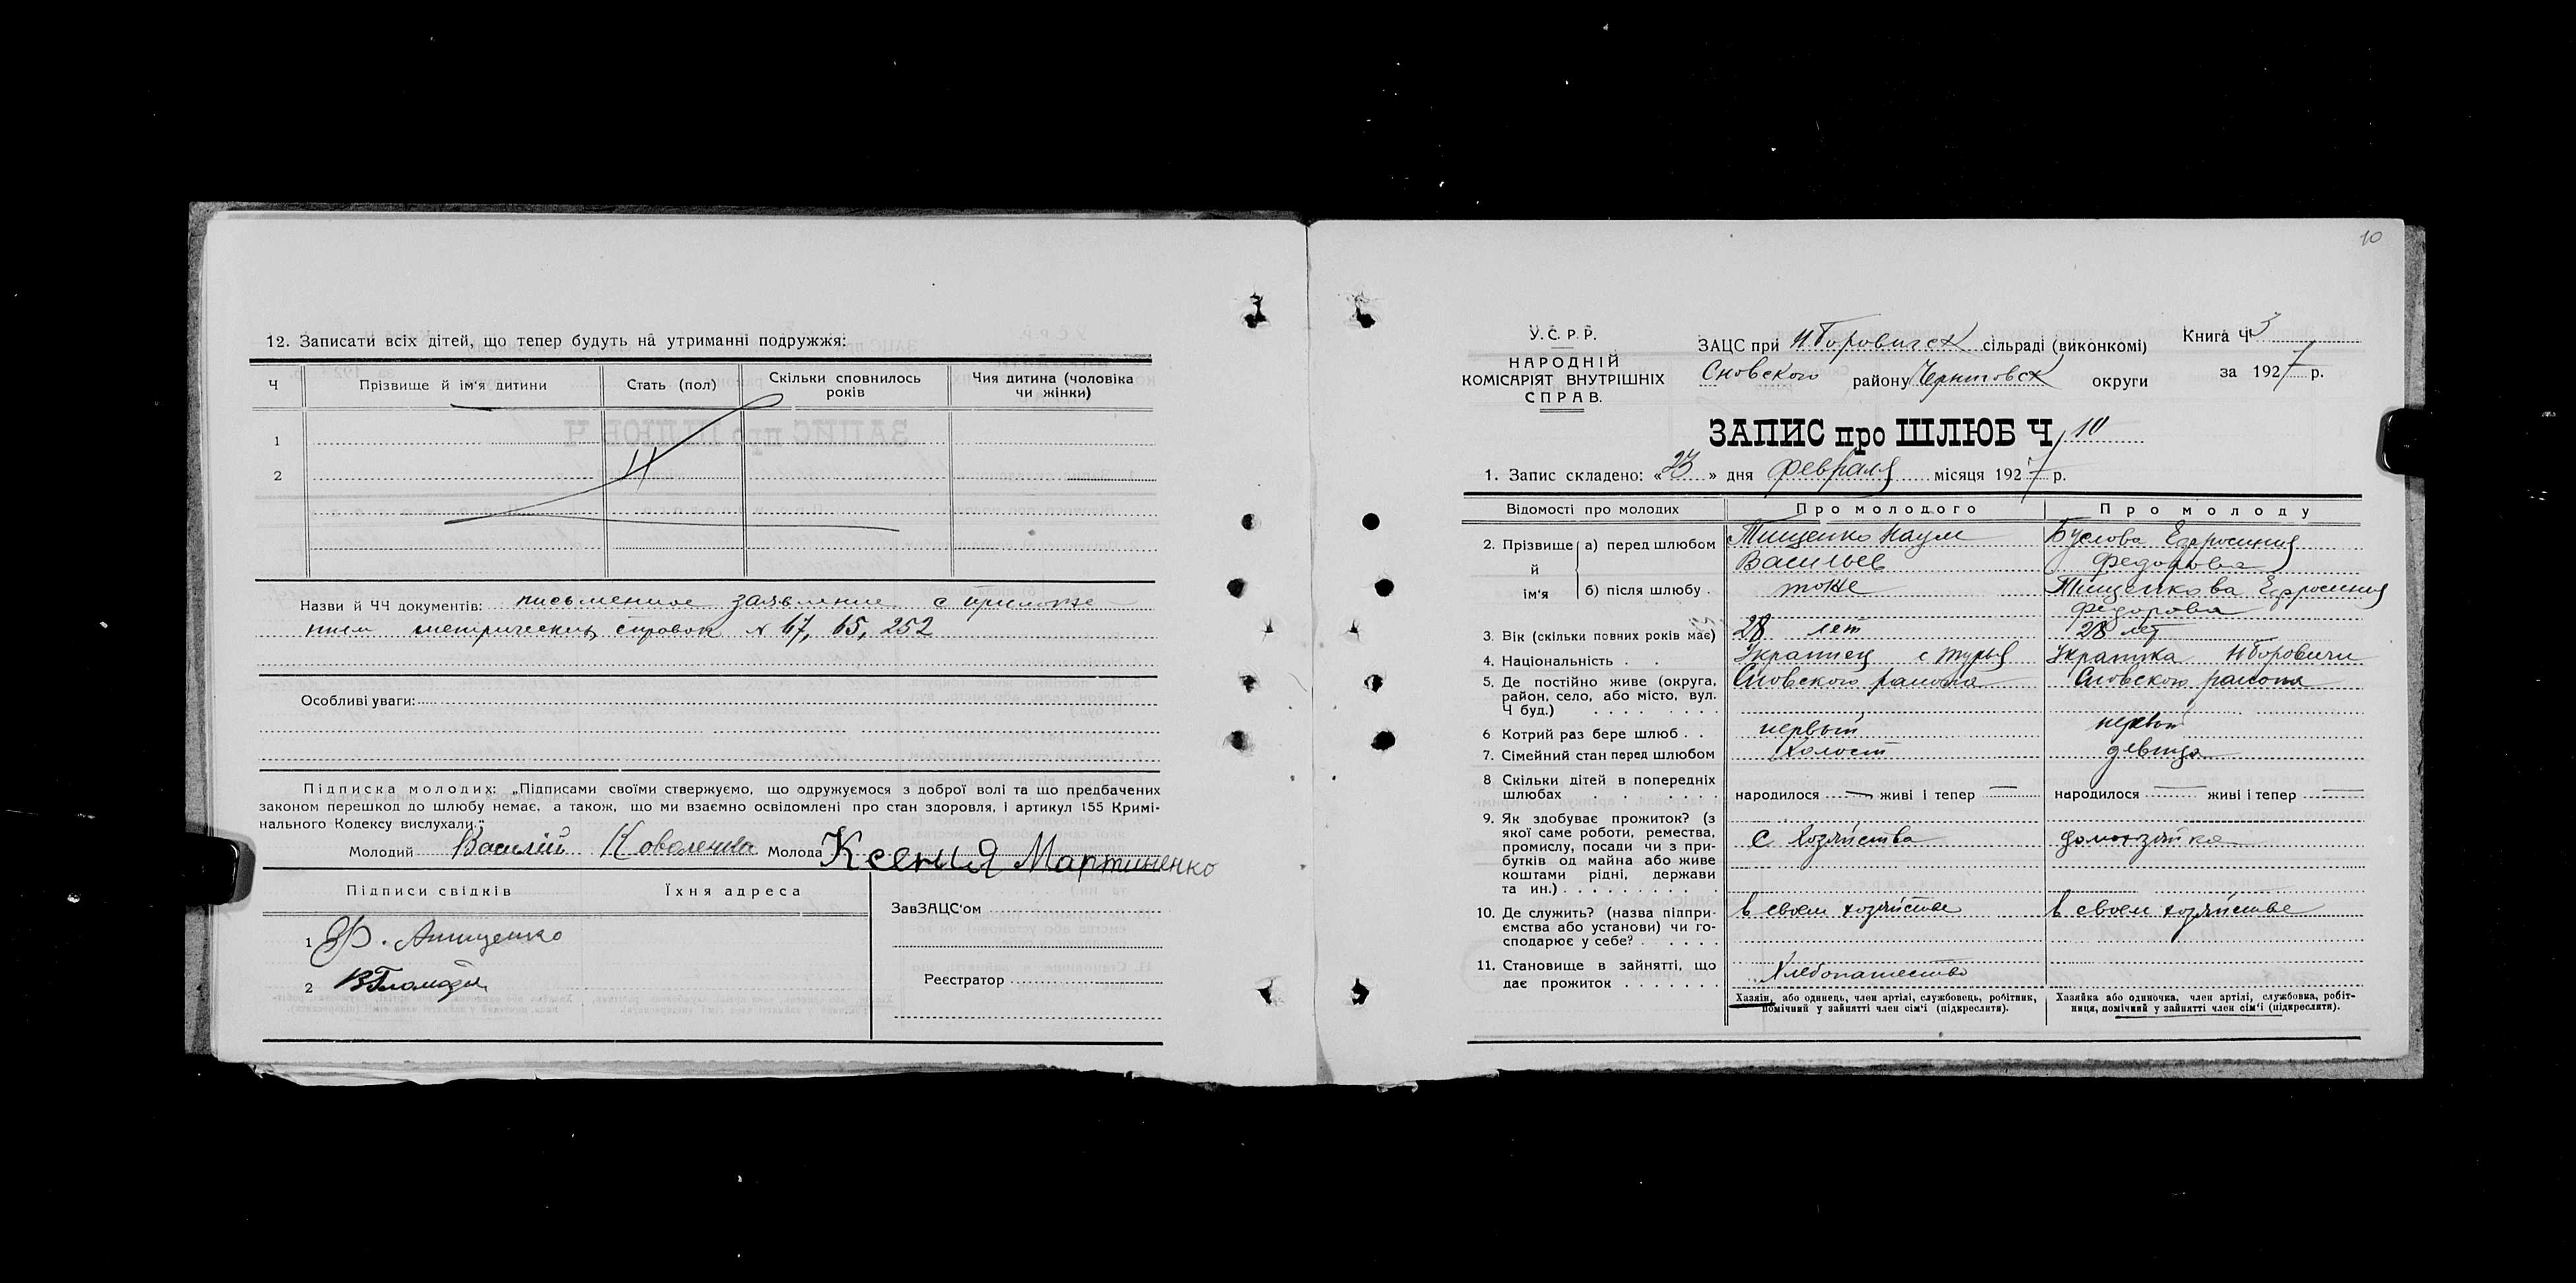 12. Записати всіх дітей, що тепер будуть на утриманні подружжя:
Ч Прізвище й ім'я дитини Стать (пол) Скільки сповнилось років Чия дитина (чоловіка чи жінки)
1
2
Назви й ЧЧ документів: письменное заявление с приложе
нием метрических справок № 67, 65, 252
Особливі уваги:
Підписка молодих: „Підписами своїми стверджуємо, що одружуємося з доброї волі та що предбачених
законом перешкод до шлюбу немає, а також, що ми взаємно освідомлені про стан здоровля, і артикул 155 Кримі-
нального Кодексу вислухали."
Молодий Василий Коваленко Молода Ксения Мартиненко
Підписи свідків Їхня адреса
ЗавЗАЦС'ом
1
2
Реєстратор
10
У.С.Р.Р.
НАРОДНІЙ
КОМІСАРІЯТ ВНУТРІШНІХ
СПРАВ.
ЗАЦС при Н Боровичск сільраді (виконкомі)
Сновского району Черниговск округи
Книга Ч 3
за 1927 р.
ЗАПИС про ШЛЮБ Ч 10
1. Запис складено: «23» дня февраля місяця 1927 р.
Відомості про молодих Про молодого Про молоду
2. Прізвище й ім'я а) перед шлюбом Тищенко Наум Буслова Ефросиния
Васильев Федорова
б) після шлюбу тоже Тищенкова Ефросиния
Федорова
3. Вік (скільки повних років має) 28 лет 28 лет
4. Національність Украинец с Турья Украинка Н Боровичи
5. Де постійно живе (округа, Сновского района Сновского района
район, село, або місто, вул.
Ч буд.)
6 Котрий раз бере шлюб первый первый
7. Сімейний стан перед шлюбом Холост девица
8 Скільки дітей в попередніх
шлюбах народилося — живі і тепер — народилося — живі і тепер —
9. Як здобуває прожиток? (з
якої саме роботи, ремества, С Хозяйства домохозяйка
промислу, посади чи з при-
бутків од майна або живе
коштами рідні, держави
та ин.)
10. Де служить? (назва підпри- в своем хозяйстве в своем хозяйстве
ємства або установи) чи го-
сподарює у себе?
11. Становище в зайнятті, що Хлебопашество
дає прожиток
Хазяїн, або одинець, член артілі, службовець, робітник, Хазяйка або одиночка, член артілі, службовка, робіт-
помічний у зайнятті член сім'ї (підкреслити). ниця, помічний у зайнятті член сім'ї (підкреслити).